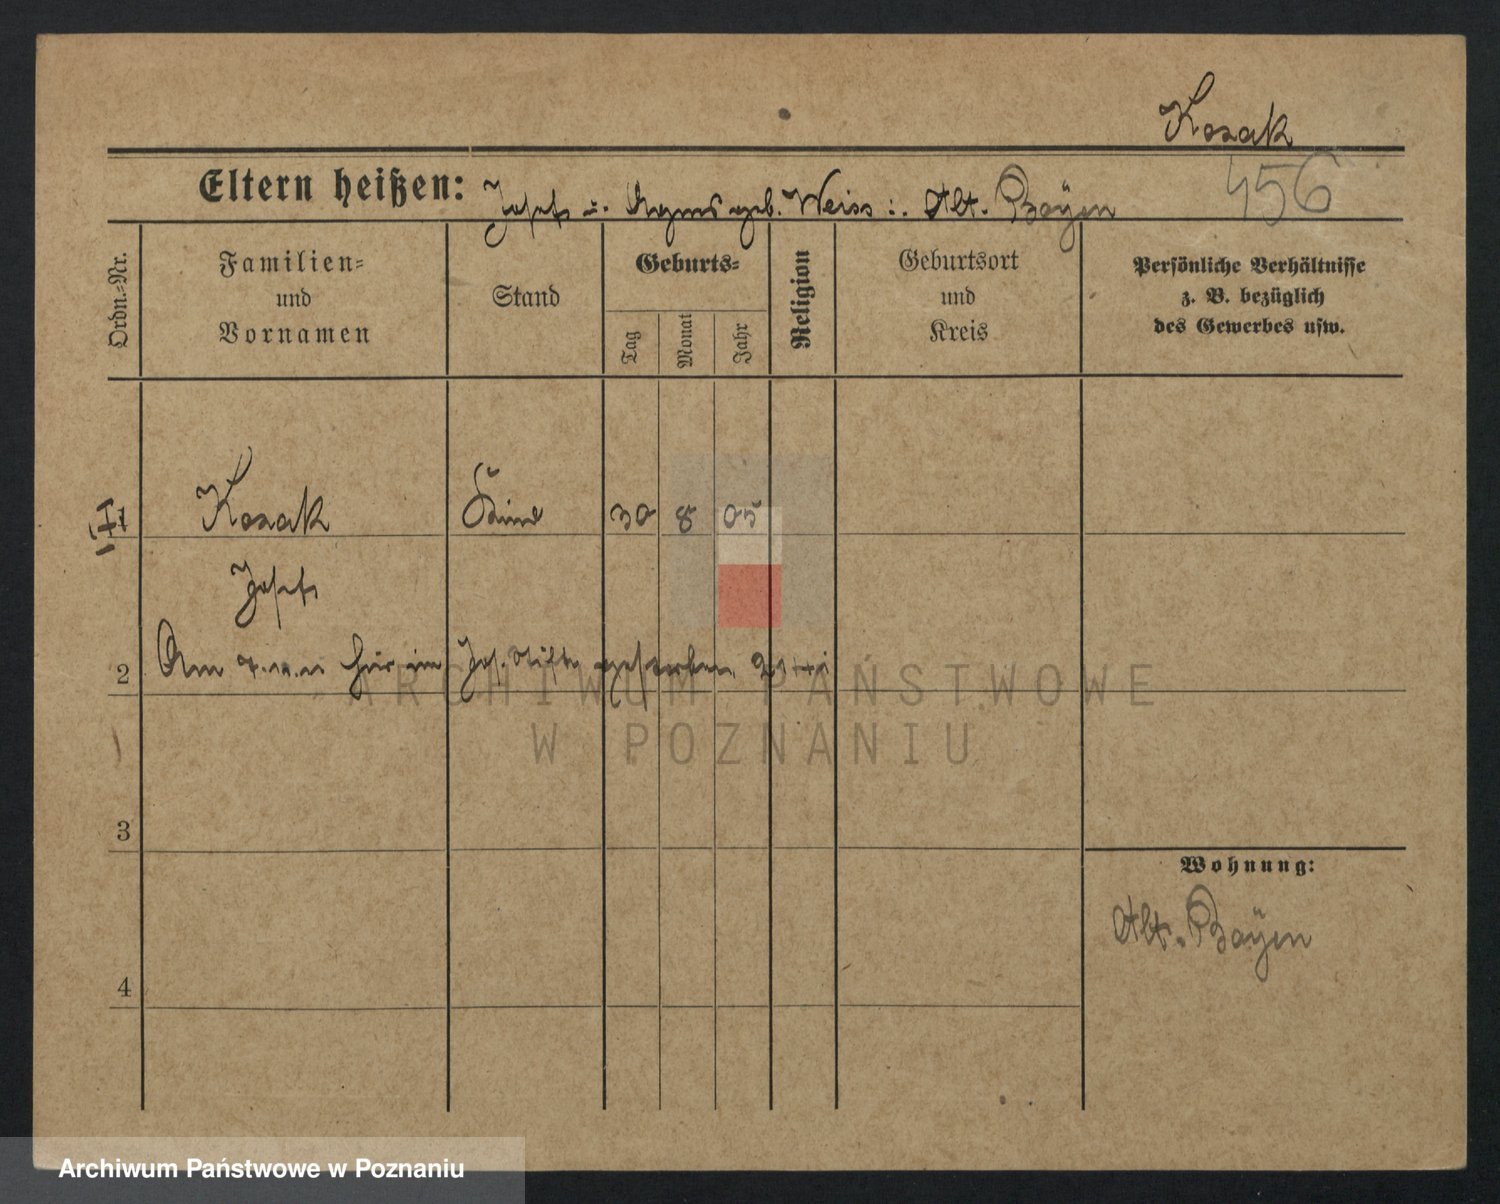 Kozak
Eltern heißen: Josef u. Agnes geb. Weiss :. Alt. Boÿen
456
Ordn.-Nr.
Familien-
und
Vornamen
Stand
Geburts-
Tag
Monat
Jahr
Religion
Geburtsort
und
Kreis
Persönliche Verhältnisse
z. B. bezüglich
des Gewerbes usw.
1 Kozak Kind 30 8 05
Josef
2 Am hier im Jos. Stift gestorben
3
4
Wohnung:
Alt. Boÿen
ARCHIWUM PAŃSTWOWE
W POZNANIU
Archiwum Państwowe w Poznaniu